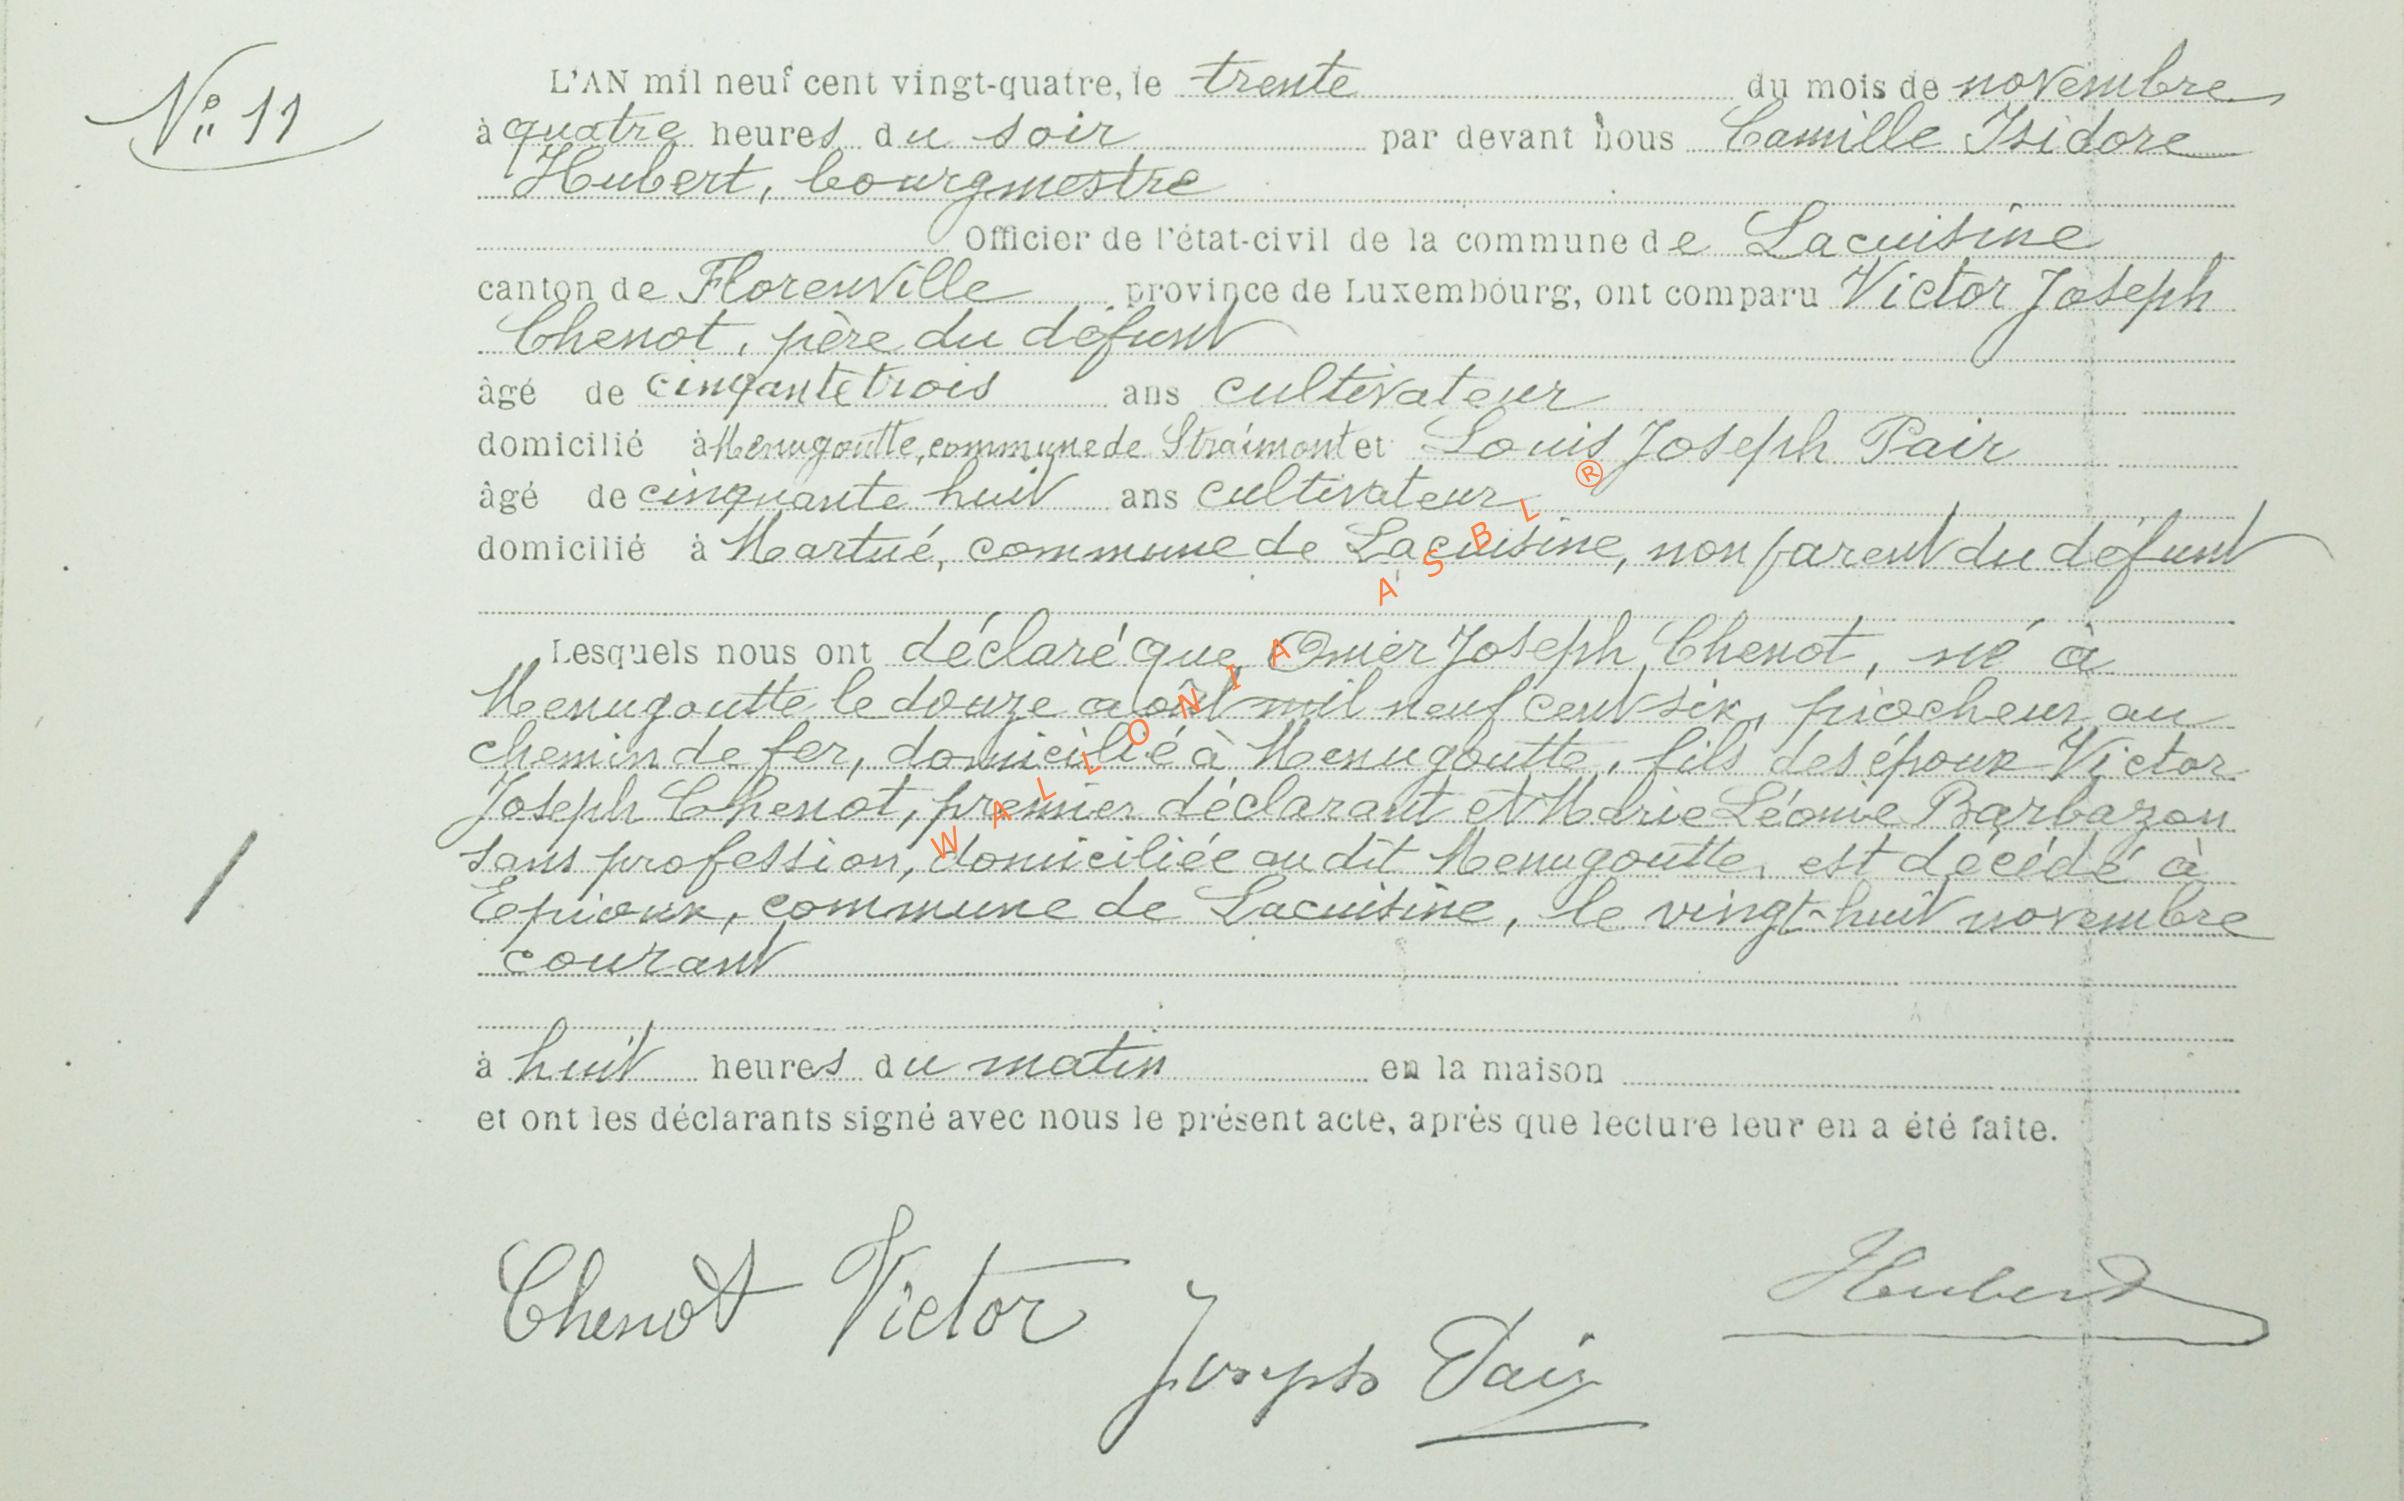 N° 11
L'AN mil neuf cent vingt-quatre, le trente du mois de novembre
à quatre heures du soir par devant nous Camille Isidore
Hubert, bourgmestre
Officier de l'état-civil de la commune de Lacuisine
canton de Florenville province de Luxembourg, ont comparu Victor Joseph
Chenot, père du défunt
âgé de cinqante trois ans cultivateur
domicilié à Menugoutte, commune de Straimont et Louis Joseph Pair
âgé de cinquante huit ans cultivateur
domicilié à Martué, commune de Lacuisine, non parent du défunt
Lesquels nous ont déclaré que Omer Joseph Chenot, né à
Menugoutte le douze août mil neuf cent six, piocheur au
chemin de fer, domicilié à Menugoutte, fils des époux Victor
Joseph Chenot, premier déclarant et Marie Léonie Barbazon
sans profession, domiciliée au dit Menugoutte, est décédé à
Epioux, commune de Lacuisine, le vingt-huit novembre
courant
à huit heures du matin en la maison
et ont les déclarants signé avec nous le présent acte, après que lecture leur en a été faite.
Chenot Victor
Joseph Pair
Hubert
WALLONIA ASBL ®